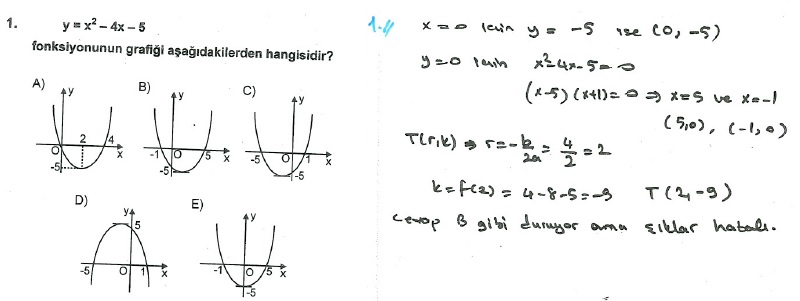 1. y = x² – 4x – 5
fonksiyonunun grafiği aşağıdakilerden hangisidir?
A) y 2 4 O x -5
B) y -1 O 5 x -5
C) y -5 O 1 x -5
D) y 5 -5 O 1 x
E) y -1 O 5 x -5
1-)) x = 0 için y = -5 ise (0, -5)
y=0 için x²-4x-5=0
(x-5)(x+1)=0 ⇒ x=5 ve x=-1
(5,0), (-1,0)
T(r,k) ⇒ r=-b/2a=4/2=2
k=f(2)=4-8-5=-9 T(2,-9)
Cevap B gibi duruyor ama şıklar hatalı.